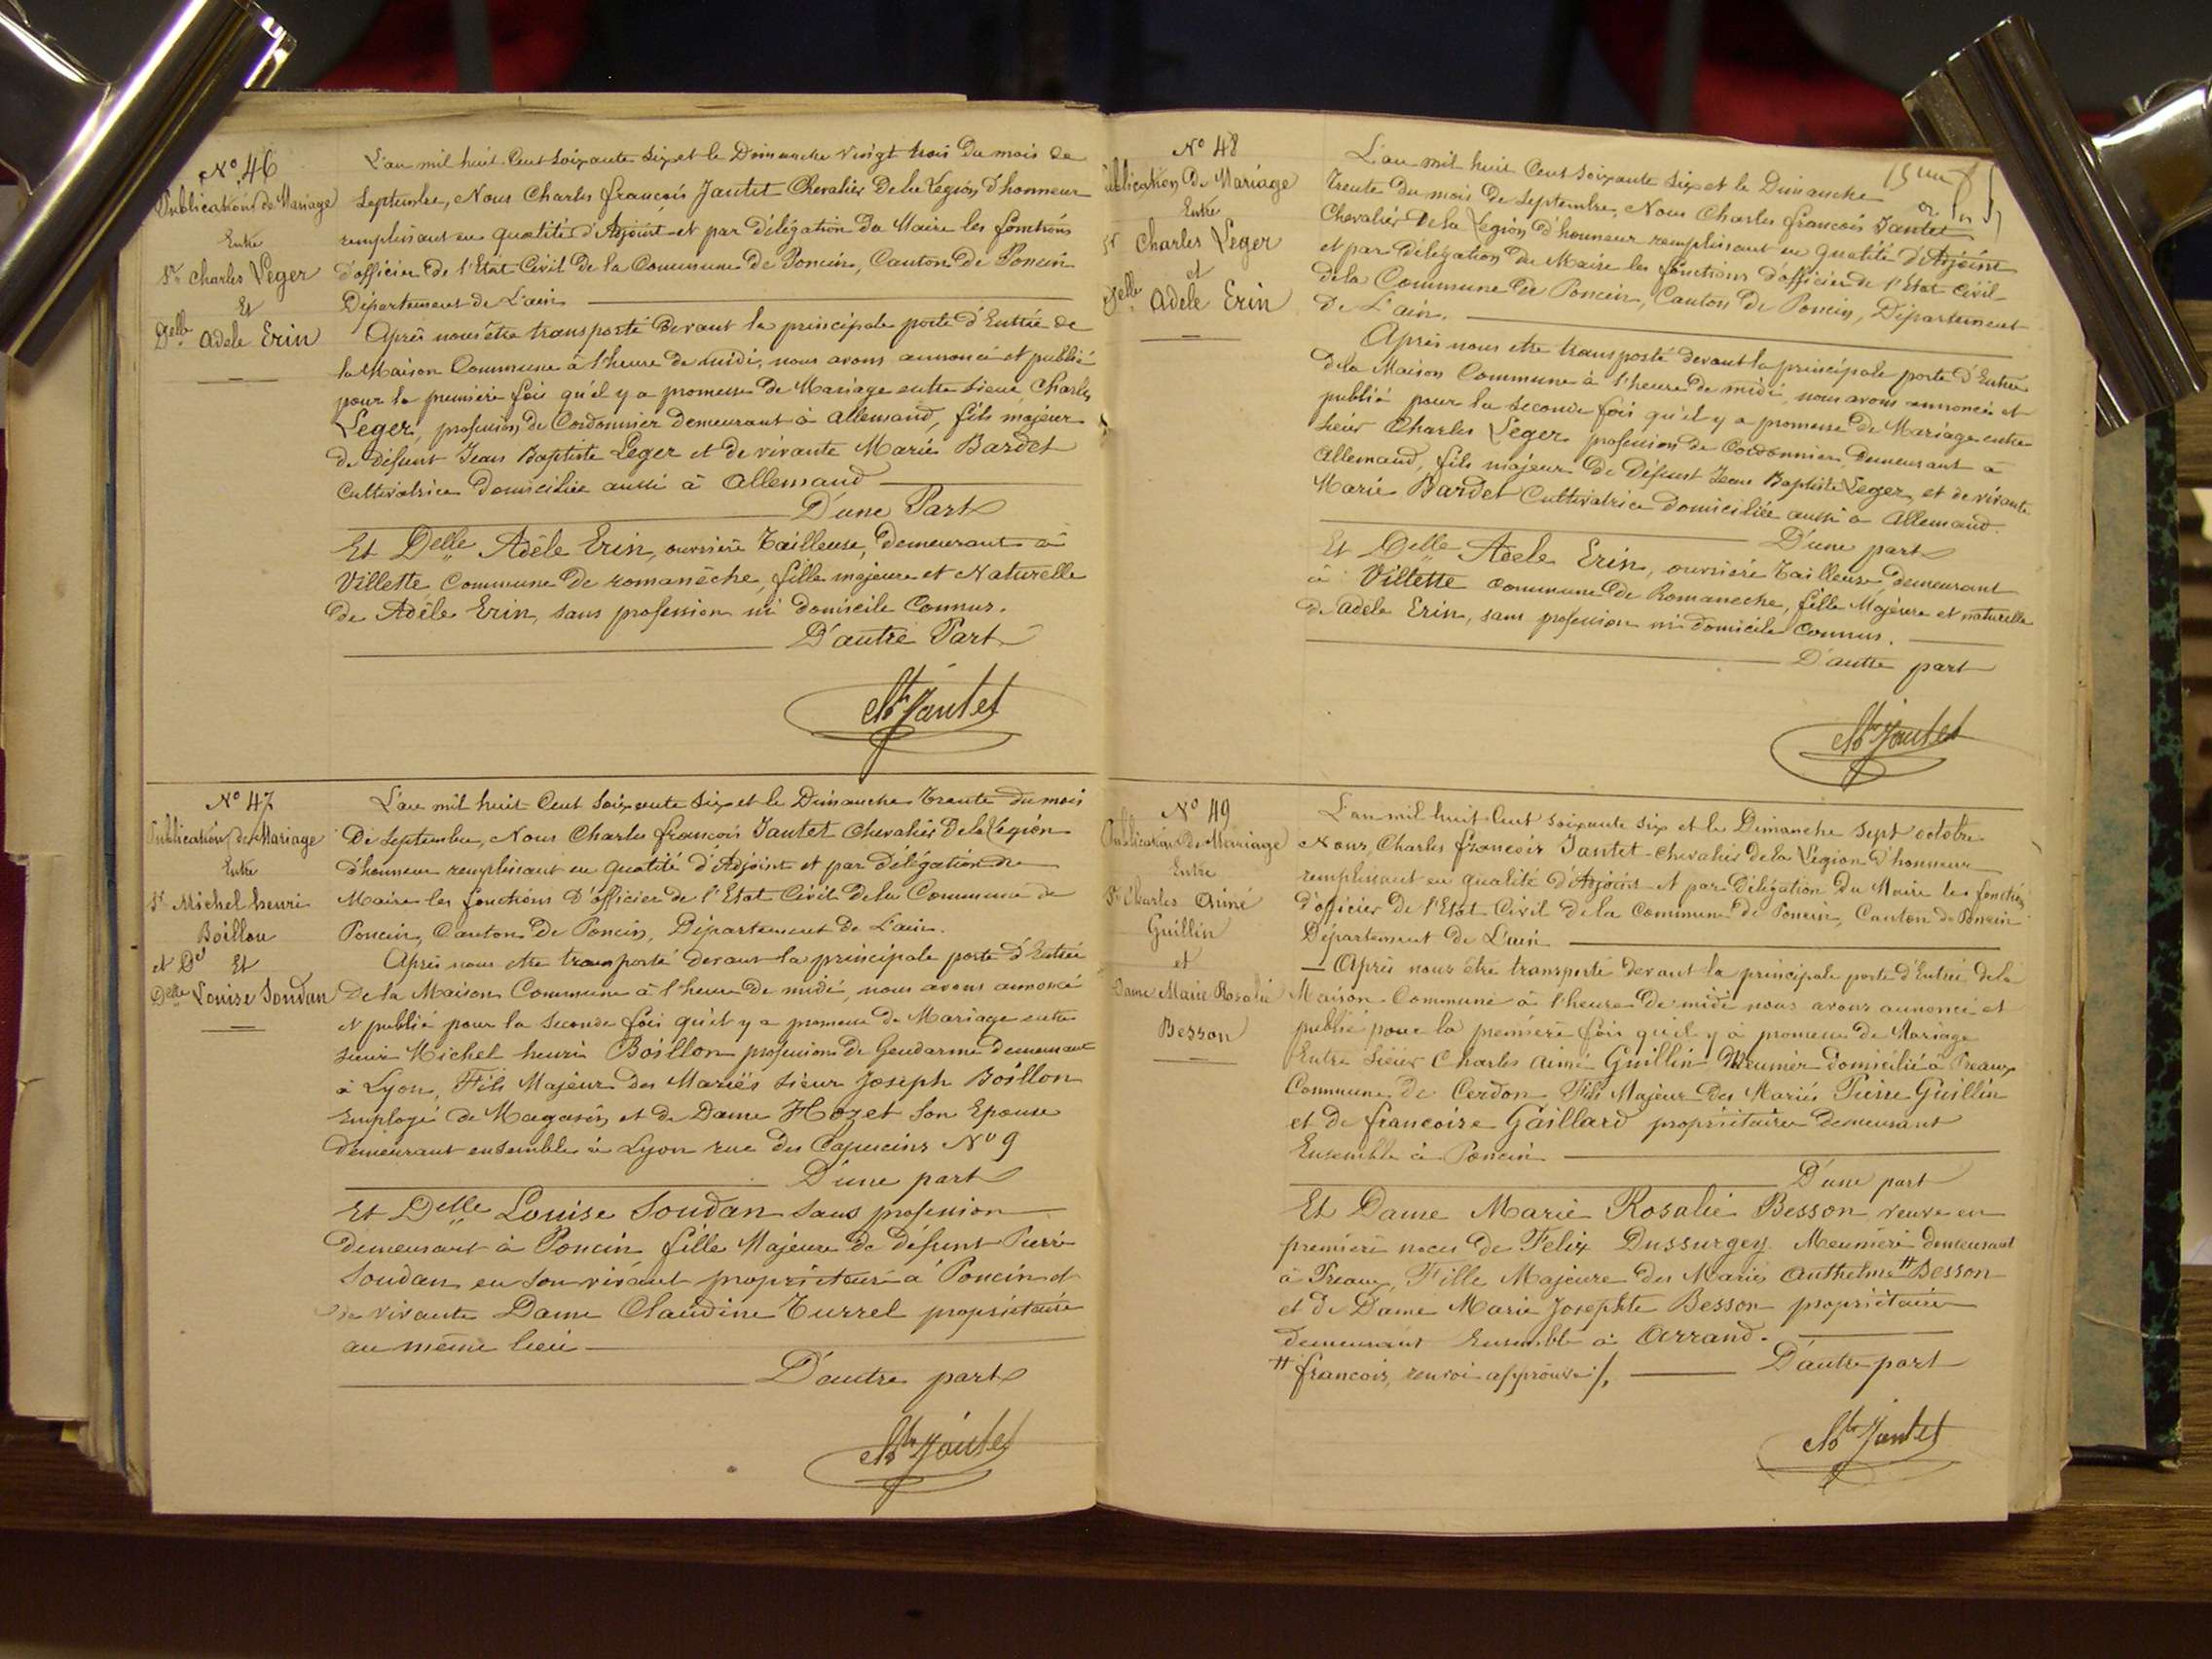 No 46
Publication de Mariage
Entre
Sr Charles Leger
Et
Delle Adele Erin
L'an mil huit Cent soixante six et le Dimanche vingt trois du mois de
Septembre, Nous Charles francois Jantet Chevalier De la Légion d'honneur
remplissant en qualité d'Adjoint et par délégation du Maire les fonctions
d'officier De l'Etat Civil De la Commune De Poncin, Canton De Poncin
Département De L'ain
Après nous être transporté Devant la principale porte d'Entrée de
la Maison Commune à l'heure de midi, nous avons annoncé et publié
pour la première fois qu'il y a promesse de Mariage entre sieur Charles
Leger, profession de Cordonnier demeurant à Allemand, fils majeur
de défunt Jean Baptiste Leger et de vivante Marie Bardet
Cultivatrice domiciliée aussi à Allemand
D'une Part
Et Delle Adèle Erin, ouvrière Tailleuse, demeurant à
Villette Commune de romanèche, fille majeure et Naturelle
de Adèle Erin, sans profession ni domicile Connus.
D'autre Part
Ch Jantet
No 47
Publication de Mariage
Entre
Sr Michel henri
Boillon
et Dd Et
Delle Louise Soudan
L'an mil huit Cent soixante six et le Dimanche Trente du mois
De Septembre, Nous Charles francois Jantet Chevalier De la Légion
d'honneur remplissant en qualité d'Adjoint et par délégation du
Maire les fonctions d'officier de l'Etat Civil De la Commune de
Poncin, Canton De Poncin, Département de L'ain.
Après nous être transporté devant la principale porte d'Entrée
De la Maison Commune à l'heure de midi, nous avons annoncé
et publié pour la seconde fois qu'il y a promesse de Mariage entre
sieur Michel henri Boillon profession de Gendarme demeurant
à Lyon, Fils Majeur des Mariés sieur Joseph Boillon
Employé de Magasin et de Dame Hozet son Epouse
demeurant ensemble à Lyon rue des Capucins No 9
D'une part
Et Delle Louise Soudan sans profession
demeurant à Poncin fille Majeure de défunt Pierre
Soudan en son vivant propriétaire à Poncin et
de vivante Dame Claudine Turrel propriétaire
au même lieu
D'autre part
Ch Jantet
No 48
Publication De Mariage
Entre
Sr Charles Leger
et
Delle Adele Erin
L'an mil huit Cent soixante six et le Dimanche
Trente du mois De Septembre, Nous Charles francois Jantet
Chevalier De la Légion d'honneur remplissant en qualité d'Adjoint
et par délégation du Maire les fonctions d'officier de l'Etat Civil
de la Commune de Poncin, Canton De Poncin, Département
De L'ain.
Après nous être transporté devant la principale porte d'Entrée
De la Maison Commune à l'heure de midi, nous avons annoncé et
publié pour la seconde fois qu'il y a promesse de Mariage entre
sieur Charles Leger profession de Cordonnier, demeurant à
Allemand, fils majeur de défunt Jean Baptiste Leger, et de vivante
Marie Bardet Cultivatrice domiciliée aussi à Allemand.
D'une part
Et Delle Adele Erin, ouvrière Tailleuse, demeurant
à Villette Commune de Romaneche, fille Majeure et naturelle
de adele Erin, sans profession ni domicile Connus.
D'autre part
Ch Jantet
No 49
Publication De Mariage
Entre
Sr Charles Aimé
Guillin
et
Dame Marie Rosalie
Besson
L'an mil huit Cent soixante six et le Dimanche Sept octobre
Nous, Charles francois Jantet Chevalier de la Légion d'honneur
remplissant en qualité d'Adjoint et par délégation du Maire les fonctions
d'officier de l'Etat Civil de la Commune de Poncin, Canton de Poncin
Département de L'ain
Après nous être transporté devant la principale porte d'Entrée de la
Maison Commune à l'heure de midi nous avons annoncé et
publié pour la première fois qu'il y a promesse de Mariage
Entre sieur Charles aimé Guillin Meunier domicilié à Preaux
Commune de Cerdon Fils Majeur des Mariés Pierre Guillin
et de francoise Gaillard propriétaires demeurant
Ensemble à Poncin
D'une part
Et Dame Marie Rosalie Besson veuve en
première noces de Felix Dussurgey Meunière demeurant
à Preaux, Fille Majeure des Mariés Anthelme # Besson
et de Dame Marie Josephte Besson propriétaires
demeurant Ensemble à Arrand.
# francois, renvoi approuvé /. D'autre part
Ch Jantet